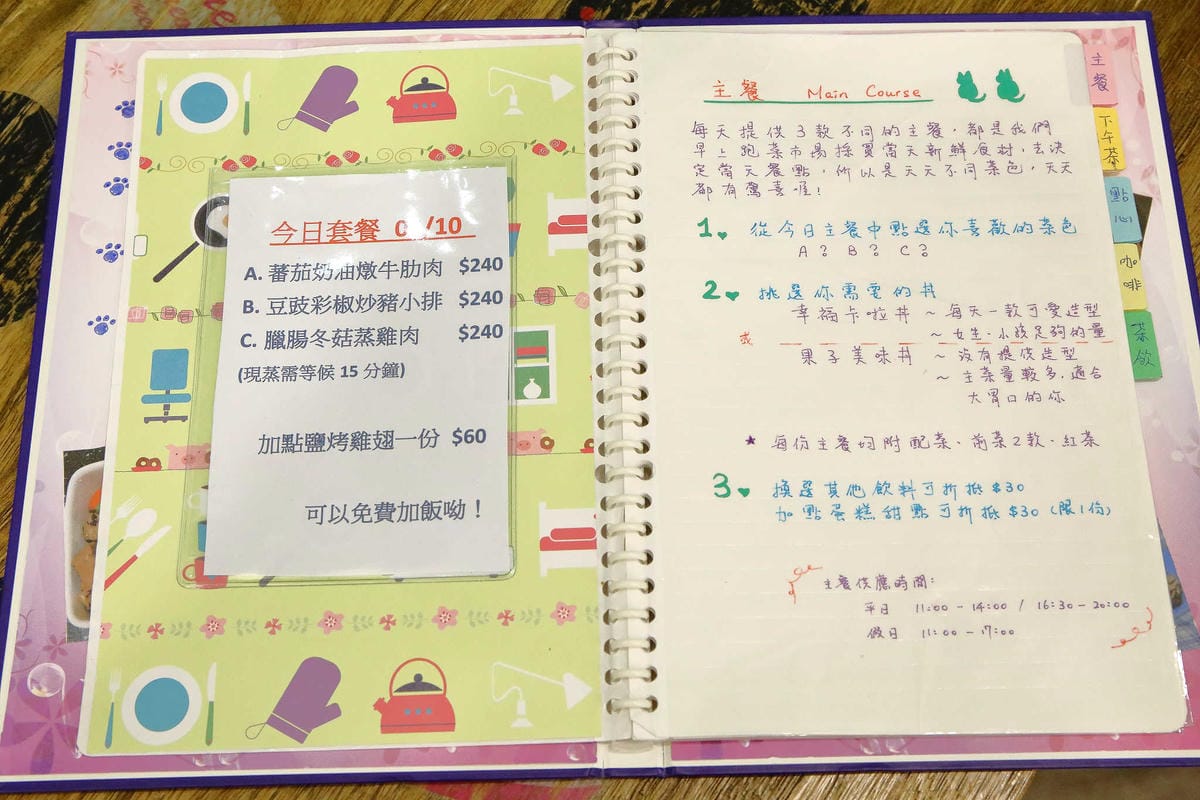 今日套餐 0 /10
A. 蕃茄奶油燉牛肋肉 $240
B. 豆豉彩椒炒豬小排 $240
C. 臘腸冬菇蒸雞肉 $240
(現蒸需等候 15 分鐘)
加點鹽烤雞翅一份 $60
可以免費加飯呦！
主餐 Main Course
每天提供3款不同的主餐，都是我們
早上跑菜市場採買當天新鮮食材，去決
定當天餐點，所以是天天不同菜色，天天
都有驚喜喔！
1. 從今日主餐中點選你喜歡的菜色
A？ B？ C？
2 挑選你需要的丼
幸福卡啦丼 ~ 每天一款可愛造型
~ 女生、小孩足夠的量
或
果子美味丼 ~ 沒有提供造型
~ 主菜量較多，適合
大胃口的你
★ 每份主餐均附配菜、前菜2款、紅茶
3 換選其他飲料可折抵$30
加點蛋糕甜點可折抵$30 (限1份)
主餐供應時間：
平日 11:00 - 14:00 / 16:30 - 20:00
假日 11:00 - 17:00
主餐
下午茶
點心
咖啡
茶飲